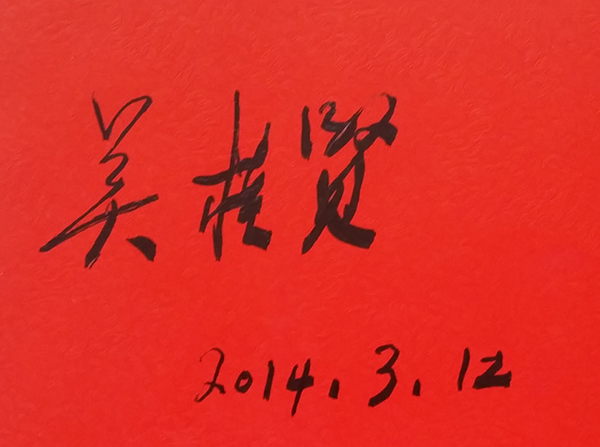 吴桂贤
2014.3.12